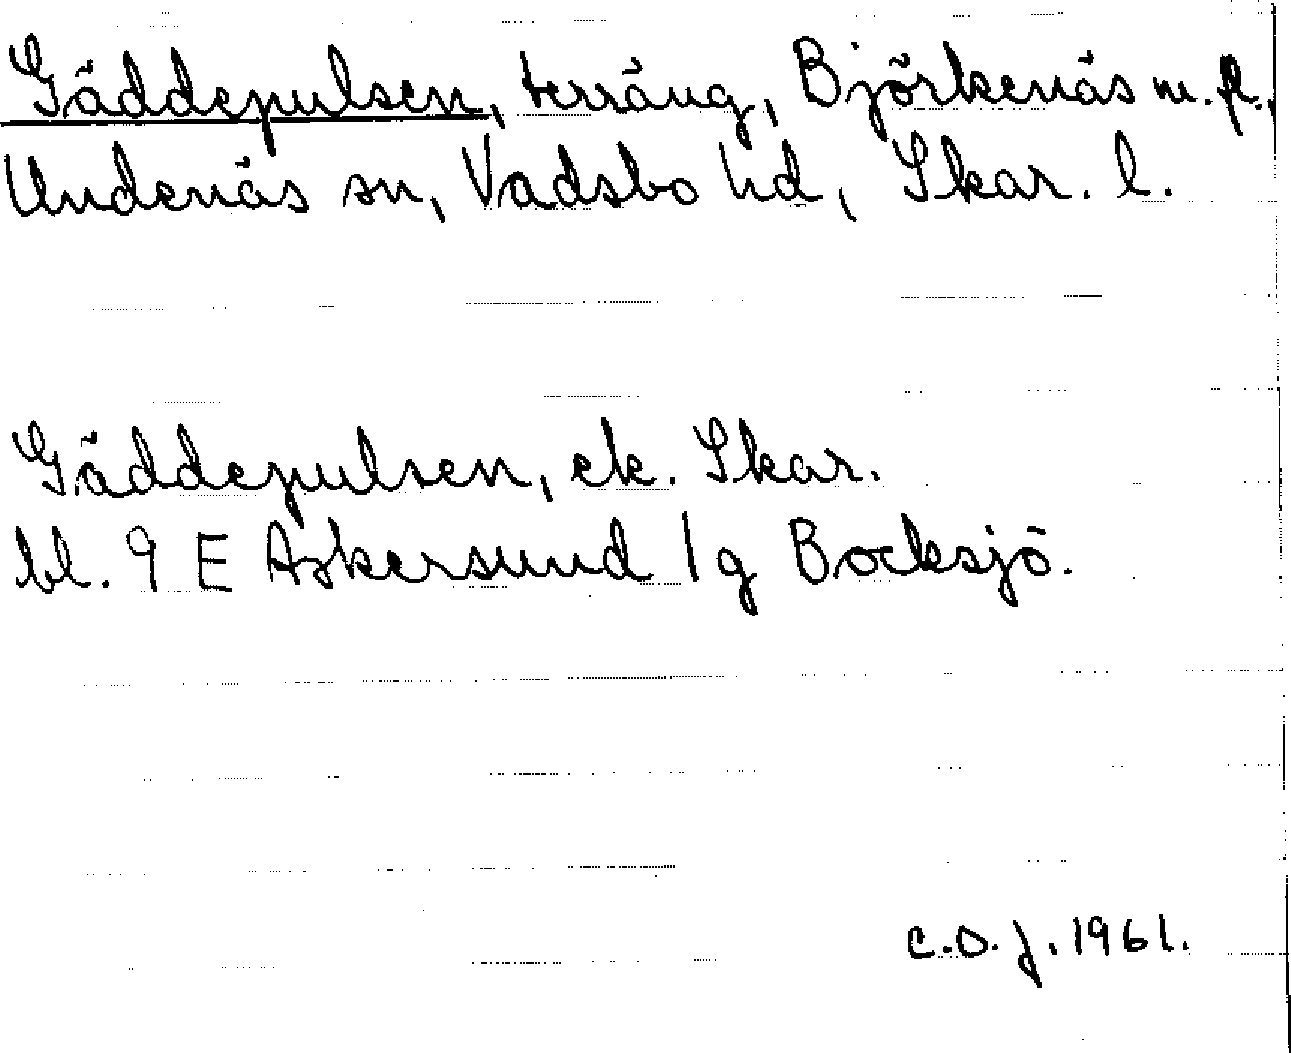 Gäddepulsen, terräng, Björkenäs m.fl.,
Undenäs sn, Vadsbo hd, Skar. l.
Gäddepulsen, ek. Skar.
bl. 9 E Askersund 1g Bocksjö.
C.O.J. 1961.